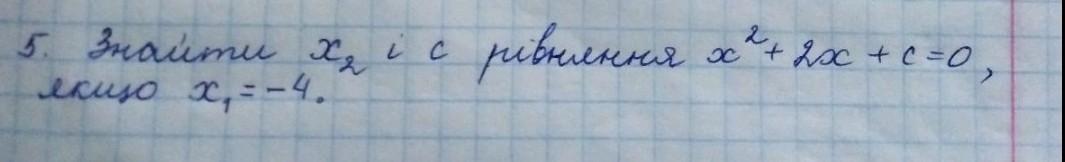 5. Знайти x₂ і c рівняння x² + 2x + c = 0,
якщо x₁ = -4.